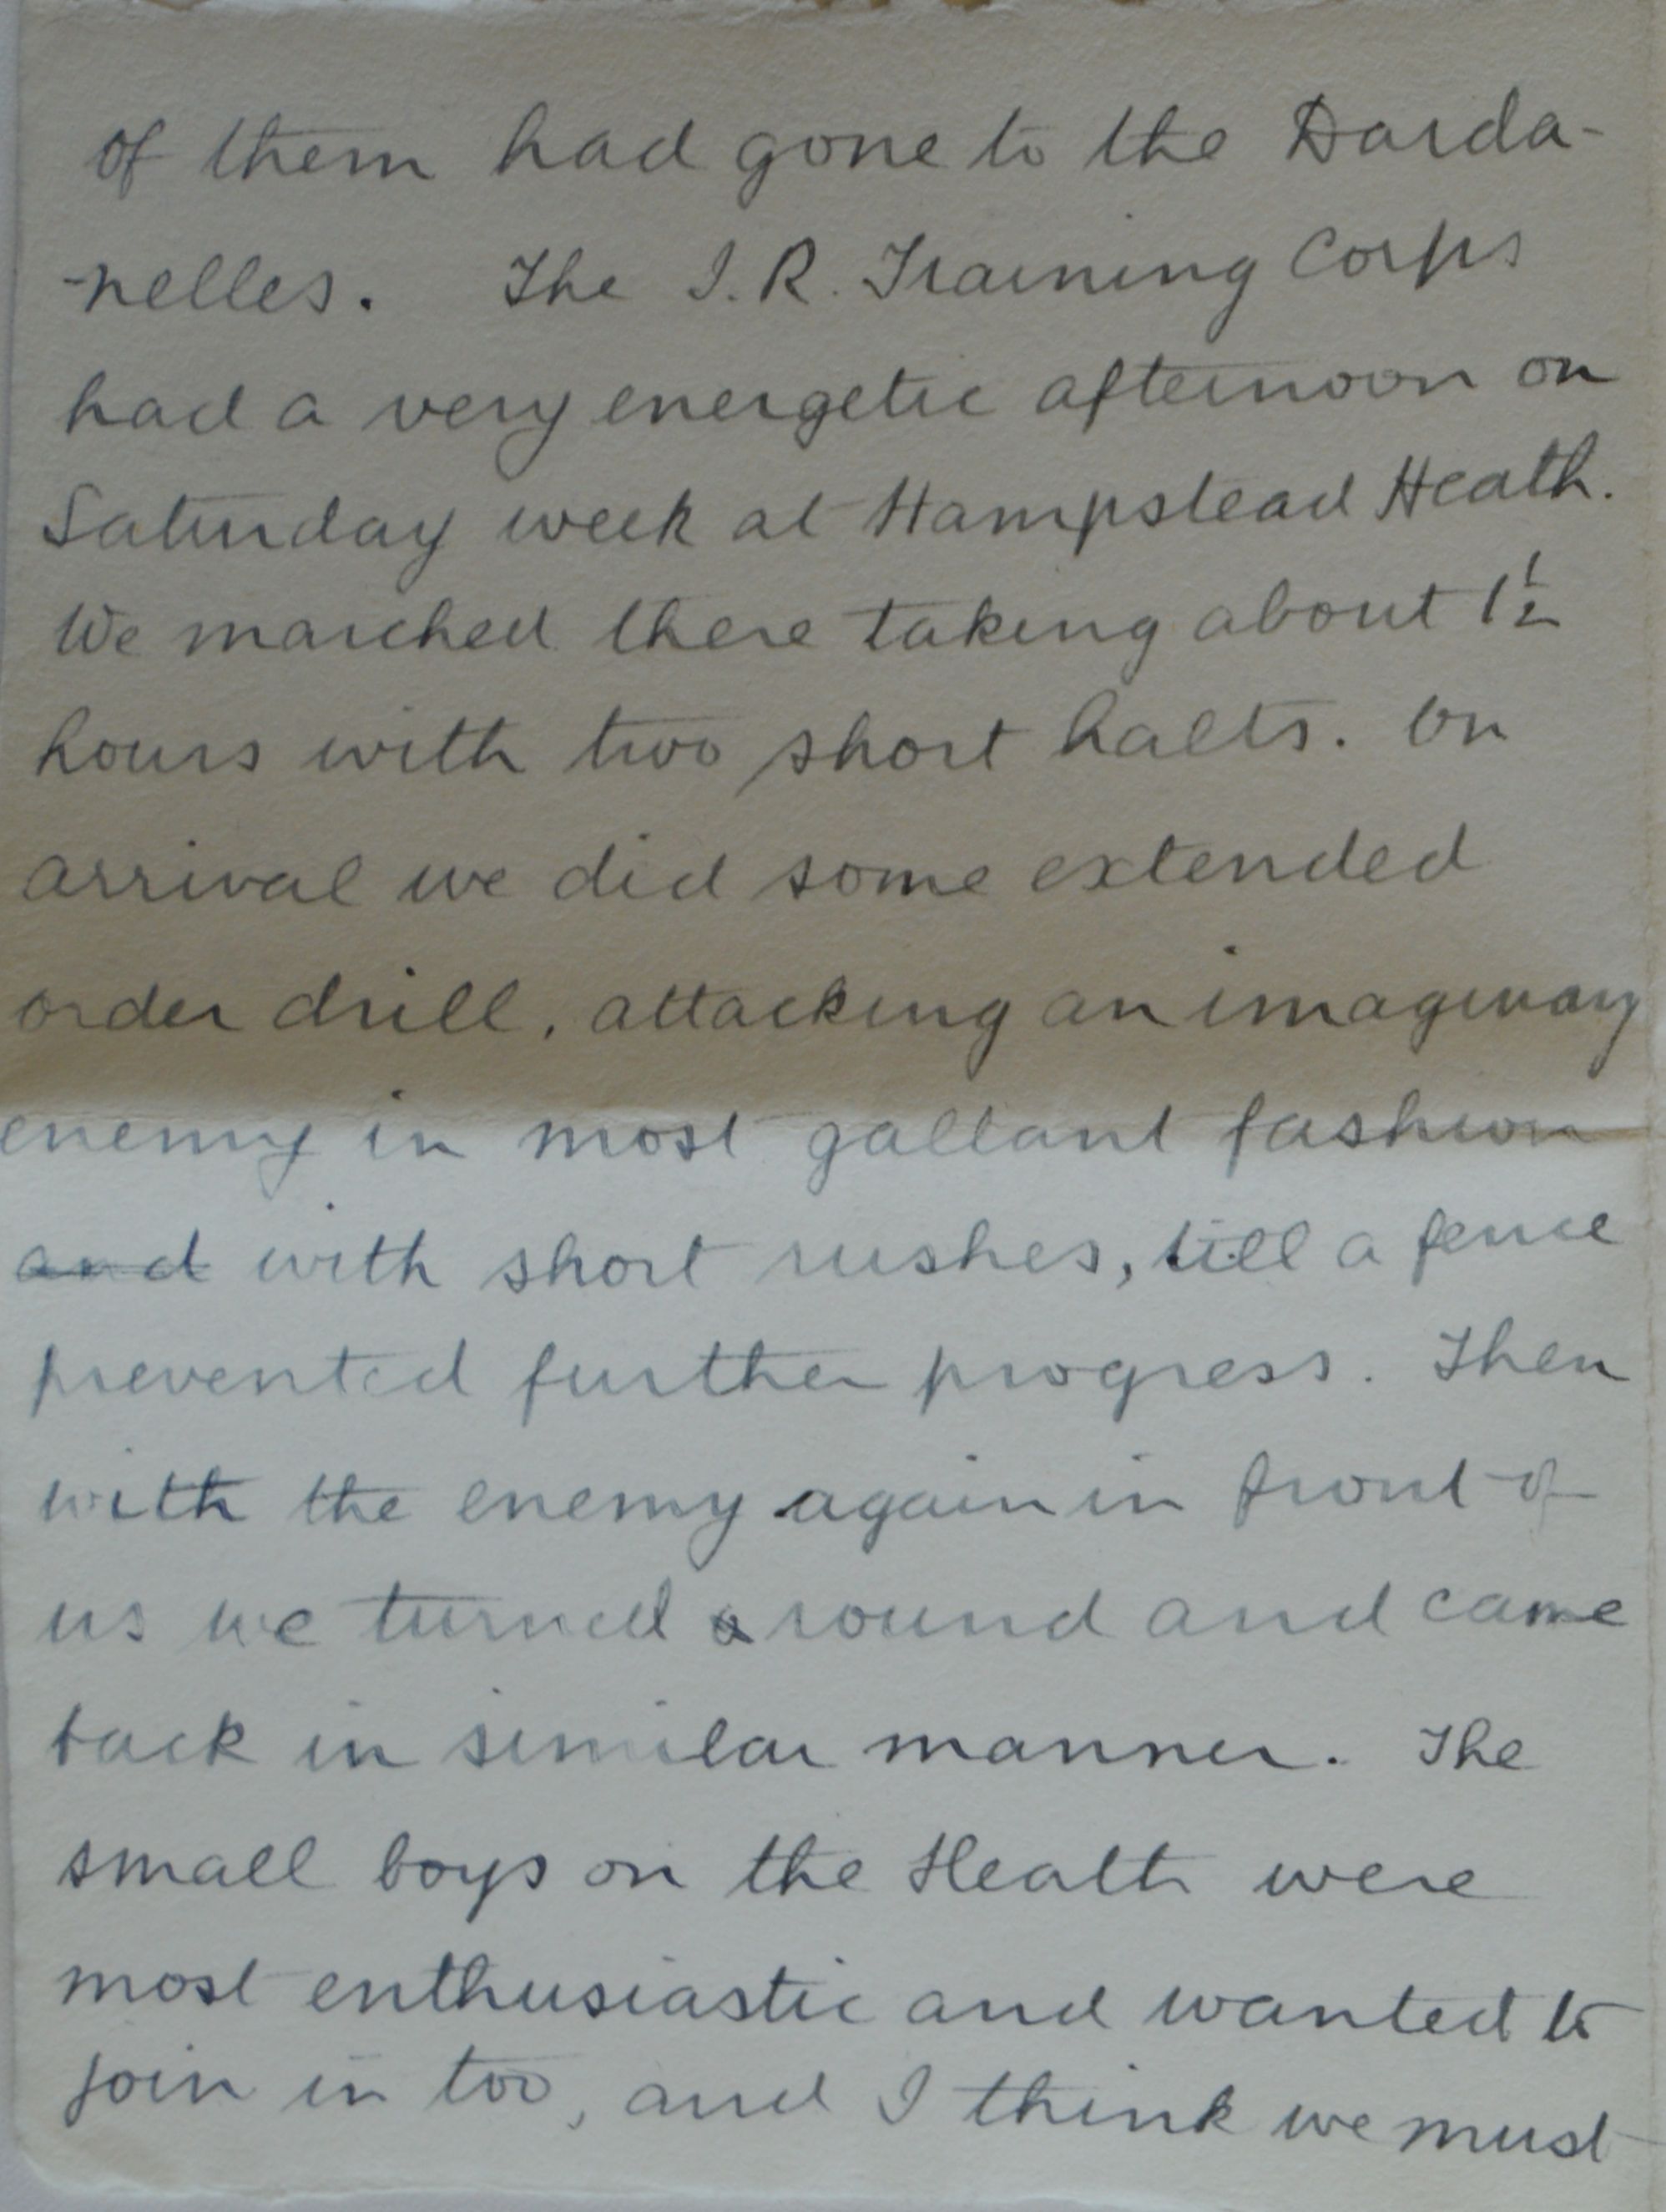 of them had gone to the Darda-
-nelles. The I.R. Training Corps
had a very energetic afternoon on
Saturday week at Hampstead Heath.
We marched there taking about 1½
hours with two short halts. On
arrival we did some extended
order drill, attacking an imaginary
enemy in most gallant fashion
and with short rushes, till a fence
prevented further progress. Then
with the enemy again in front of
us we turned around and came
back in similar manner. The
small boys on the Heath were
most enthusiastic and wanted to
join in too, and I think we must